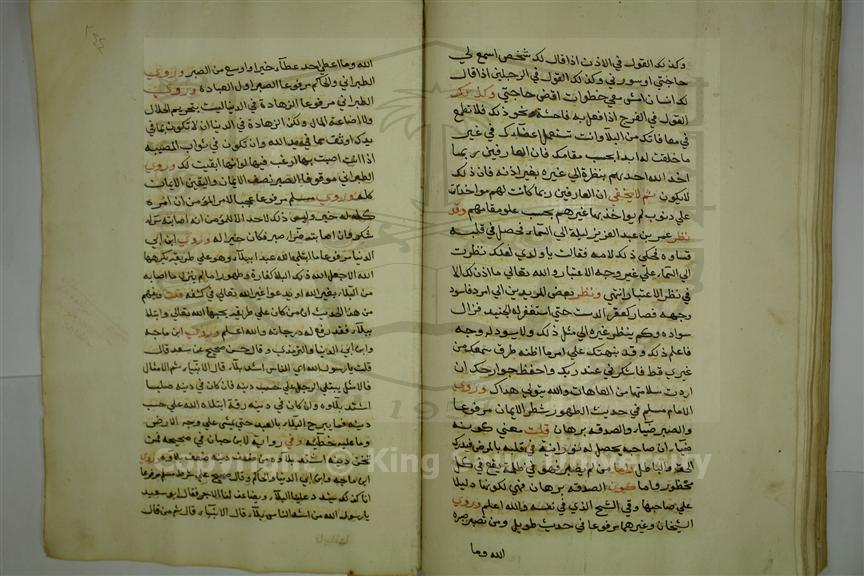 وكذلك القول في الاذن اذا قال لك شخص اسمع لي
حاجتي او سور في وكذلك القول في الرجلين اذا قال
لك انسان امش معي خطوات اقض حاجتي وكذلك
القول في الفرج اذا فعل به فاحشة نحو ذلك فلا تطمع
في معافاتك من البلا وانت تستعمل اعضاءك في غير
ما خلقت له ابدا بحسب مقامك فان العارفين ربما
اخذ الله احدهم بنظرة الى غيره بغير اذنه فان ذلك
لا يكون ثم لا يخفى ان العارفين ربما كانت لهم مواخذات
على ذنوب لم يواخذ بها غيرهم بحسب علو مقامهم وقد
نظر عمر بن عبد العزيز ليلة الى السماء فحصل في قلبه
قساوة فحكى ذلك لامه فقالت يا ولدي لعلك نظرت
الى السماء على غير وجه الاعتبار والله تعالى ما اذن لك الا
في نظر الاعتبار انتهى ونظر بعض المريدين الى امرد فاسود
وجهه فصار كقعر الدست حتى استغفر له الجنيد فزال
سواده وكم ينظر غيره الى مثل ذلك ولا يسود له وجه
فاعلم ذلك وقد بنهتك على امر ما اظنه طرق سمعك من
غيري قط فاشكر في عند ربك واحفظ جوارحك ان
اردت سلامتها من العاهات والله يتولى هداك وروى
الامام مسلم في حديث الطهور شطر الايمان مرفوعا
والصبر ضياء والصدقة برهان قلت معنى كونه
ضياء ان صاحبه يحصل له نورانية في قلبه بالمرض فيدرك
الحق والباطل واما من لم يصبر فهو في ظلمة يقع في كل
محظور واما كون الصدقة برهان فهي لكونها دليلا
على صاحبها وقي الشح الذي في نفسه والله اعلم وروى
الشيخان وغيرهما مرفوعا في حديث طويل ومن تصبر يصبره
الله وما
الله وما اعطي احد عطاء خيرا واوسع من الصبر وروى
الطبراني والحاكم مرفوعا الصبر اول العبادة وروى
الطبراني مرفوعا الزهادة في الدنيا ليست بتحريم الحلال
ولا اضاعة المال ولكن الزهادة في الدنيا ان لا تكون بما في
يدك اوثق مما في يد الله وان تكون في ثواب المصيبة
اذا انت اصبت بها ارغب فيها لو انها ابقيت لك وروى
الطبراني موقوفا الصبر نصف الايمان واليقين الايمان
كله وروى مسلم مرفوعا عجبا لامر المؤمن ان امره
كله له خير وليس ذلك لاحد الا للمؤمن ان اصابته سراء
شكر فان اصابته ضراء صبر فكان خيرا له وروى ابن ابي
الدنيا مرفوعا ما ابتلى الله عبدا ببلاء وهو على طريقة يكرهها
الله الا جعل الله ذلك البلاء كفارة وطهورا ما لم ينزل ما اصابه
من البلاء بغير الله او يدعو غير الله تعالى في كشفه قلت
من هذا الحديث ان من كان على طريقة يحبها الله تعالى وابتلا
ببلاء فقد رفع له درجاته والله اعلم وروى ابن ماجه
وابن ابي الدنيا والترمذي وقال حسن صحيح عن سعد قال
قلت يا رسول الله اي الناس اشد بلاء قال الانبياء ثم الامثال
فالامثل يبتلى الرجل على حسب دينه فان كان في دينه صلبا
اشتد بلاؤه وان كان في دينه رقة ابتلاه الله على حسب
دينه فما يبرح البلاء بالعبد حتى يمشي على وجه الارض
وما عليه خطيئة وفي رواية لابن حبان في صحيحه فمن
ثخن دينه اشتد بلاؤه ومن ضعف دينه ضعف بلاؤه وروى
ابن ماجه وابن ابي الدنيا والحاكم وقال صحيح على شرط مسلم مرفوعا
انا كذلك يشدد علينا البلاء ويضاعف لنا الاجر فقال ابو سعيد
يا رسول الله من اشد الناس بلاء قال الانبياء قال ثم من قال